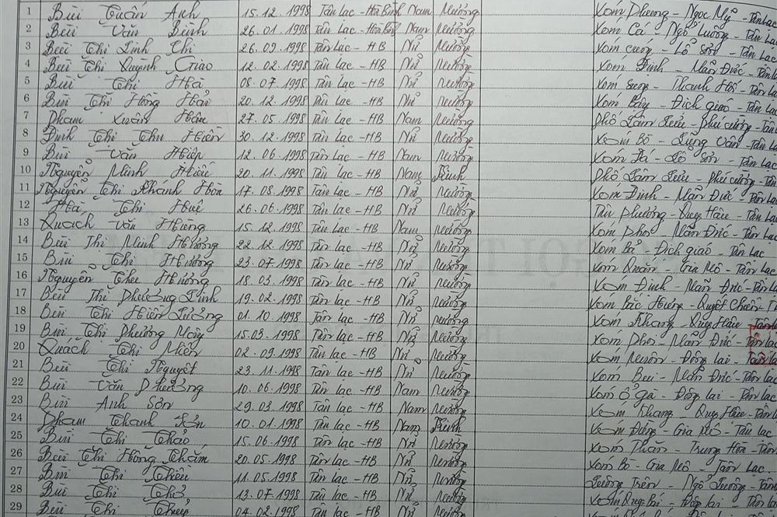 1 Bùi Tuấn Anh 15.12.1998 Tân Lạc - Hòa Bình Nam Mường Xóm Dương - Ngọc Mỹ - Tân Lạc
2 Bùi Văn Bình 26.01.1998 Tân Lạc - Hòa Bình Nam Mường Xóm Cá - Ngổ Luông - Tân Lạc
3 Bùi Thị Linh Chi 26.09.1998 Tân Lạc - HB Nữ Mường Xóm - Lỗ Sơn - Tân Lạc
4 Bùi Thị Quỳnh Giao 12.02.1998 Tân Lạc - HB Nữ Mường Xóm Định - Mãn Đức - Tân Lạc
5 Bùi Thị Hà 08.07.1998 Tân Lạc - HB Nữ Mường Xóm - Thanh Hối - Tân Lạc
6 Bùi Thị Hồng Hải 20.12.1998 Tân Lạc - HB Nữ Mường Xóm - Địch giáo - Tân Lạc
7 Phạm Xuân 27.05.1998 Tân Lạc - HB Nam Mường Phố - Phú cường - Tân
8 Đinh Thị Thu Hiền 30.12.1998 Tân Lạc - HB Nữ Mường Xóm Bó - Lũng Vân - Tân Lạc
9 Bùi Văn Hiệp 12.06.1998 Tân Lạc - HB Nam Mường Xóm - Lỗ Sơn - Tân Lạc
10 Nguyễn Minh Hiếu 20.11.1998 Tân Lạc - HB Nam Kinh Phố - Phú cường - Tân
11 Nguyễn Thị Khánh Hòa 17.08.1998 Tân Lạc - HB Nữ Mường Xóm Định - Mãn Đức - Tân Lạc
12 Hà Thị Huệ 26.06.1998 Tân Lạc - HB Nữ Mường Tân Phương - Quy Hậu - Tân Lạc
13 Quách Văn Hùng 15.12.1998 Tân Lạc - HB Nam Mường Xóm - Mãn Đức - Tân Lạc
14 Bùi Thị Minh Hường 22.12.1998 Tân Lạc - HB Nữ Mường Xóm Bả - Địch giáo - Tân Lạc
15 Bùi Thị Hường 23.07.1998 Tân Lạc - HB Nữ Mường Xóm - Gia Mô - Tân Lạc
16 Nguyễn Thu Hương 18.03.1998 Tân Lạc - HB Nữ Mường Xóm Định - Mãn Đức - Tân Lạc
17 Bùi Thị Phương Linh 19.02.1998 Tân Lạc - HB Nữ Mường Xóm Bắc Hưng - Quyết Chiến
18 Bùi Thị Hiền Lương 01.10.1998 Tân Lạc - HB Nữ Mường Xóm Khang - Quy Hậu - Tân
19 Bùi Thị Phương Mây 15.03.1998 Tân Lạc - HB Nữ Mường Xóm - Mãn Đức - Tân Lạc
20 Quách Thị Miên 02.09.1998 Tân Lạc - HB Nữ Mường Xóm - Đông lai - Tân Lạc
21 Bùi Thị Nguyệt 23.11.1998 Tân Lạc - HB Nữ Mường Xóm - Mãn Đức - Tân Lạc
22 Bùi Văn Phương 10.06.1998 Tân Lạc - HB Nam Mường Xóm - Đông lai - Tân Lạc
23 Bùi Anh Sơn 29.03.1998 Tân Lạc - HB Nam Mường Xóm Khang - Quy Hậu - Tân Lạc
24 Phạm Thanh 10.01.1998 Tân Lạc - HB Nam Kinh Xóm - Gia Mô - Tân Lạc
25 Bùi Thị Thảo 15.06.1998 Tân Lạc - HB Nữ Mường Xóm - Trung Hòa - Tân
26 Bùi Thị Hồng Thắm 20.05.1998 Tân Lạc - HB Nữ Mường Xóm Bó - Gia Mô - Tân Lạc
27 Bùi Thị 11.05.1998 Tân Lạc - HB Nữ Mường Luông Trên - Ngổ Luông - Tân
28 Bùi Thị 13.07.1998 Tân Lạc - HB Nữ Mường Xóm - Đông lai - Tân Lạc
29 Bùi Thị 04.02.1998 Tân Lạc - HB Nữ Mường